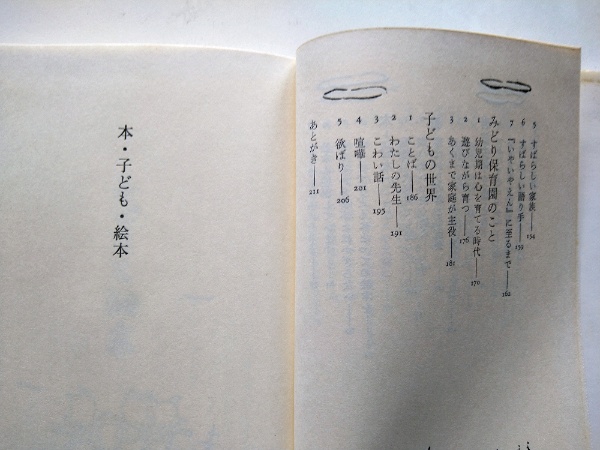 5 すばらしい家族——154
6 すばらしい語り手——159
7 『いやいやえん』に至るまで——162
みどり保育園のこと
1 幼児期は心を育てる時代——170
2 遊びながら育つ——176
3 あくまで家庭が主役——181
子どもの世界
1 ことば——186
2 わたしの先生——191
3 こわい話——195
4 喧嘩——201
5 欲ばり——206
あとがき——211
本・子ども・絵本